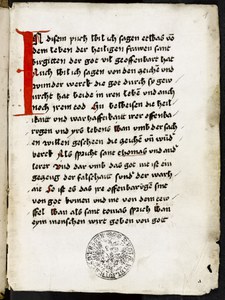 In disem puch wil ich sagen etwas vō
dem leben der heiligen frawen sant
birgitten der got vil geoffenbart hat
Auch wil ich sagen von den zeichē und
wunder werck die got durch sy gew
urcht hat beide in irem lebē und auch
noch irem tod Un beweisen die heil
ikait und warhaftikait irer offenba
rugen und yrs lebens wan umb der sach
en willen geschehen die zeichē un wūd
werck Als spricht sant thomas und and
lerer und dar umb das got nie ist ein
gezeug der falschait und der warh
ait So ist es das ire offenbarūgē sint
von got kumen und nie von dem
wan als sant tomas spricht wan
eym menschen wirt geben von got